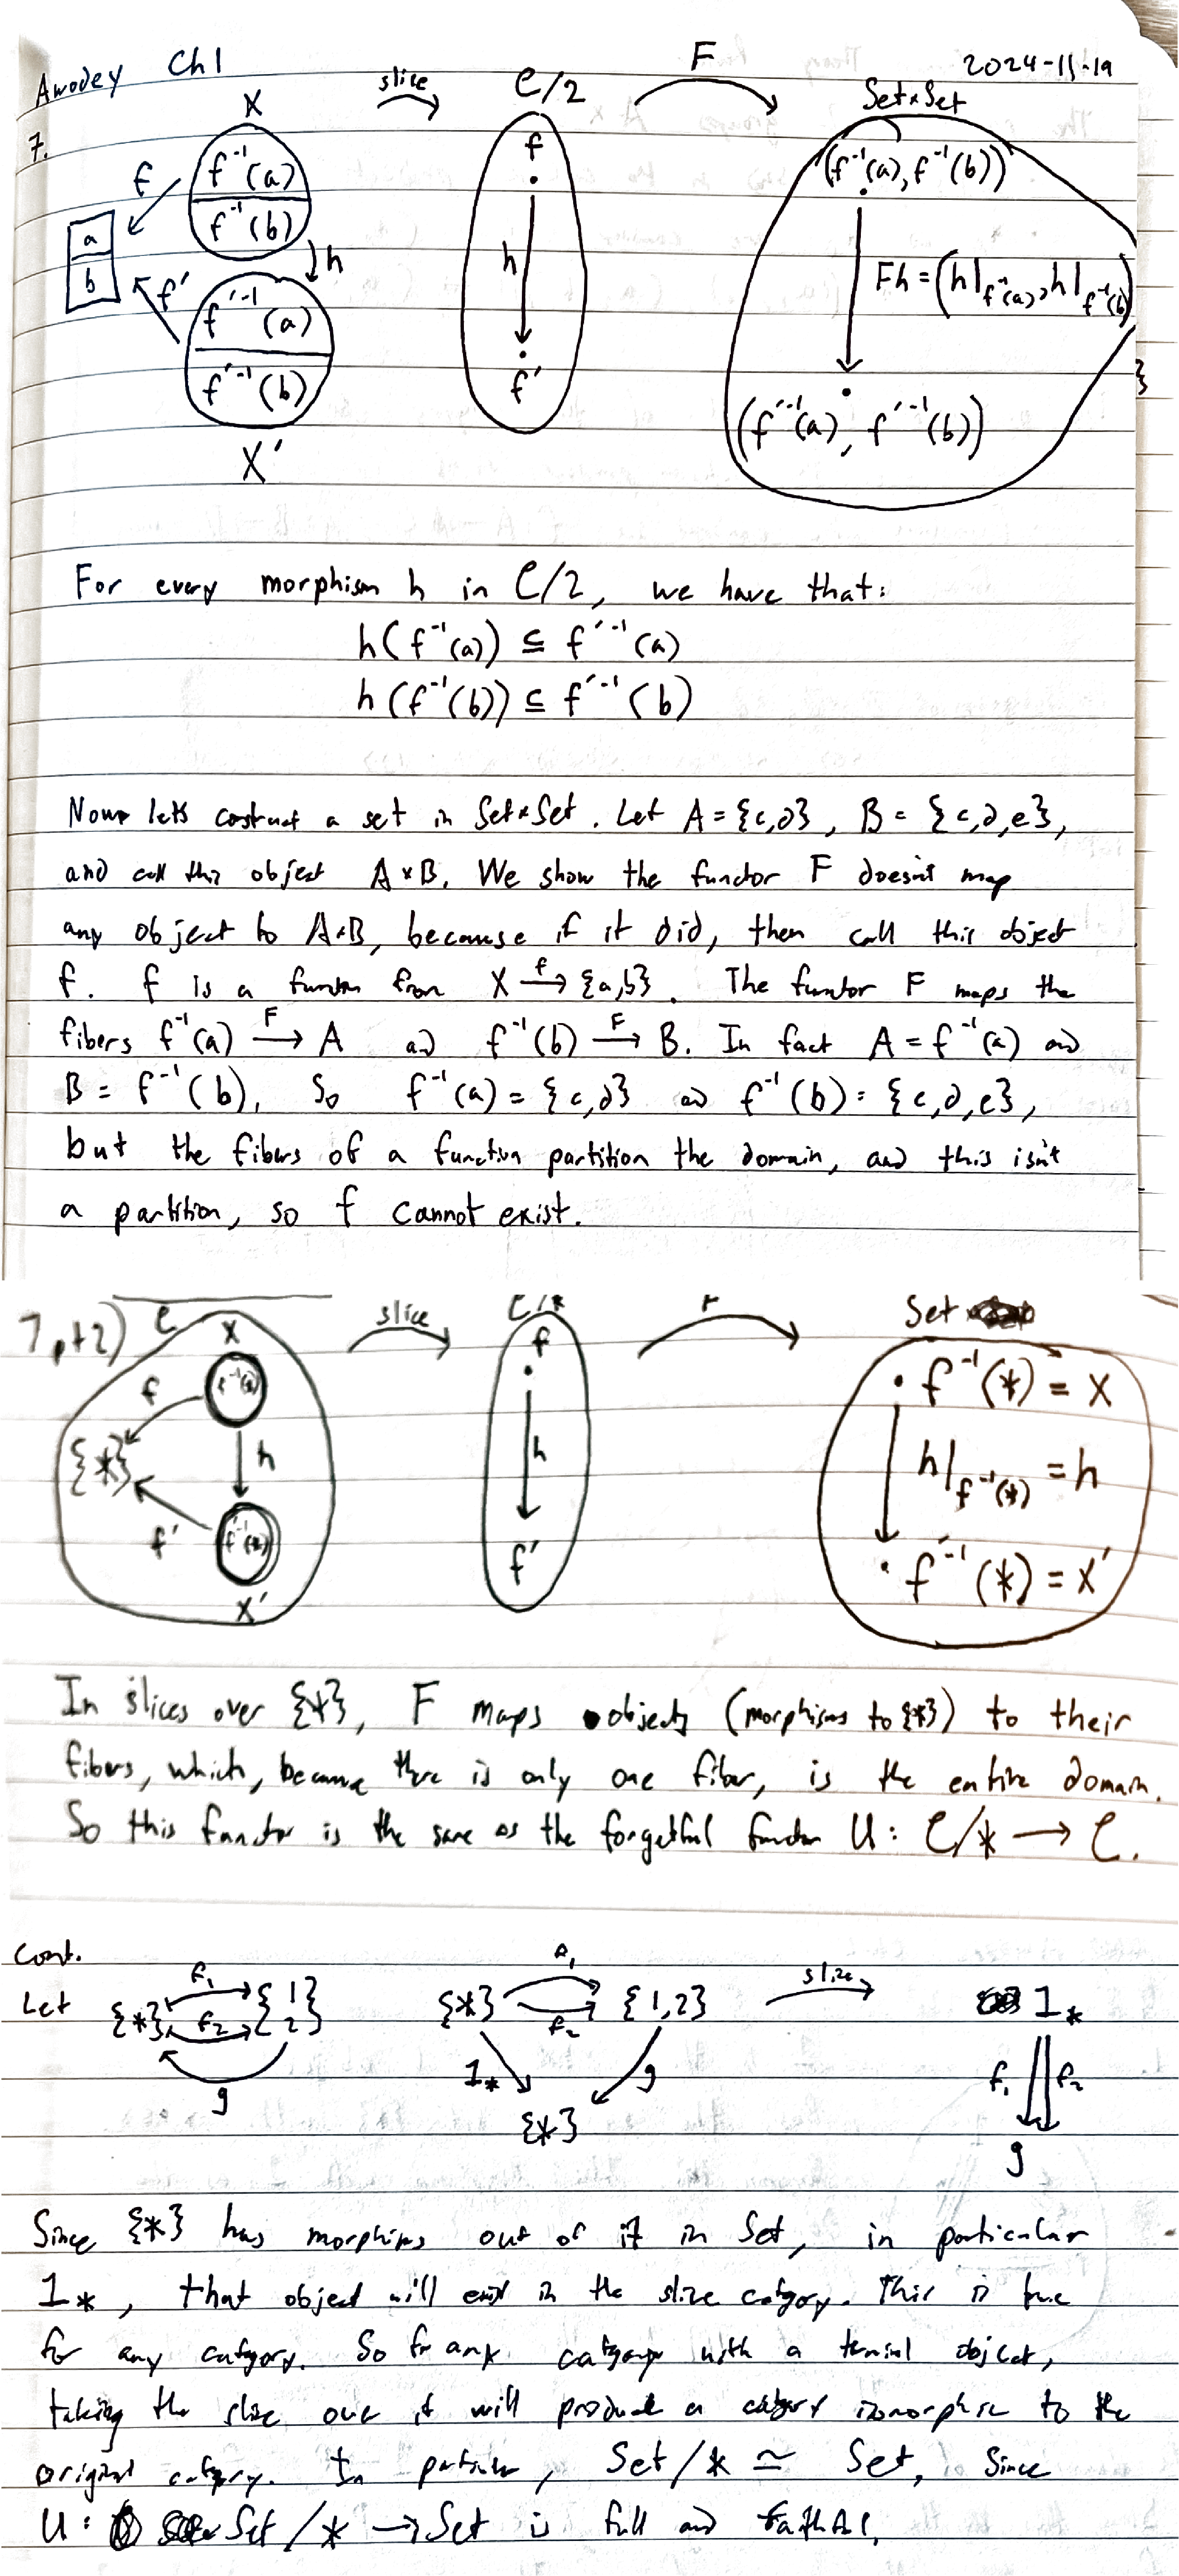 Awodey Ch1
2024-11-19
7.
X
slice
C/2
F
Set×Set
f
a
b
f⁻¹(a)
f⁻¹(b)
h
f'
f'⁻¹(a)
f'⁻¹(b)
X'
f
h
f'
(f⁻¹(a), f⁻¹(b))
Fh = (h|f⁻¹(a), h|f⁻¹(b))
(f'⁻¹(a), f'⁻¹(b))
For every morphism h in C/2, we have that:
h(f⁻¹(a)) ⊆ f'⁻¹(a)
h(f⁻¹(b)) ⊆ f'⁻¹(b)
Now lets construct a set in Set×Set. Let A = {c,d}, B = {c,d,e},
and call this object A×B. We show the functor F doesn't map
any object to A×B, because if it did, then call this object
f. f is a function from X →f {a,b}. The functor F maps the
fibers f⁻¹(a) →F A and f⁻¹(b) →F B. In fact A = f⁻¹(a) and
B = f⁻¹(b). So f⁻¹(a) = {c,d} and f⁻¹(b) = {c,d,e},
but the fibers of a function partition the domain, and this isn't
a partition, so f cannot exist.
7, pt2)
C
X
slice
C/*
F
Set
f
{*}
h
f'
X'
f
h
f'
f⁻¹(*) = X
h|f⁻¹(*) = h
f'⁻¹(*) = X'
In slices over {*}, F maps objects (morphisms to {*}) to their
fibers, which, because there is only one fiber, is the entire domain.
So this functor is the same as the forgetful functor U: C/* → C.
cont.
Let {*} f₁ f₂ {1 2} g
{*} f₁ f₂ {1,2}
1* g
{*}
slice
1*
f₁ f₂
g
Since {*} has morphisms out of it in Set, in particular
1*, that object will exist in the slice category. This is true
for any category. So for any category with a terminal object,
taking the slice over it will produce a category isomorphic to the
original category. In particular, Set/* ≃ Set, since
U: Set/* → Set is full and faithful.